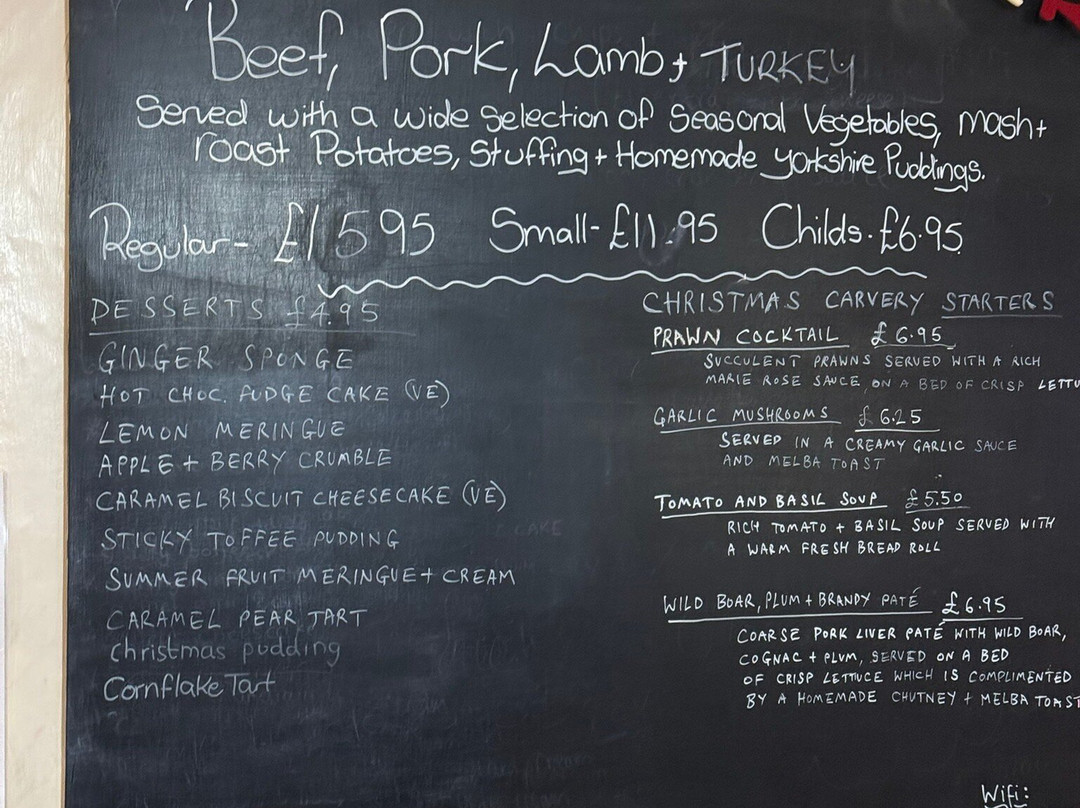 Beef, Pork, Lamb + TURKEY
Served with a wide Selection of Seasonal Vegetables, mash +
roast Potatoes, Stuffing + Homemade Yorkshire Puddings.
Regular - £15 95 Small - £11.95 Childs. £6.95
DESSERTS £4.95
GINGER SPONGE
HOT CHOC. FUDGE CAKE (VE)
LEMON MERINGUE
APPLE + BERRY CRUMBLE
CARAMEL BISCUIT CHEESECAKE (VE)
STICKY TOFFEE PUDDING
SUMMER FRUIT MERINGUE + CREAM
CARAMEL PEAR TART
christmas pudding
Cornflake Tart
CHRISTMAS CARVERY STARTERS
PRAWN COCKTAIL £6.95
SUCCULENT PRAWNS SERVED WITH A RICH
MARIE ROSE SAUCE ON A BED OF CRISP LETTU
GARLIC MUSHROOMS £6.25
SERVED IN A CREAMY GARLIC SAUCE
AND MELBA TOAST
TOMATO AND BASIL SOUP £5.50
RICH TOMATO + BASIL SOUP SERVED WITH
A WARM FRESH BREAD ROLL
WILD BOAR, PLUM + BRANDY PATÉ £6.95
COARSE PORK LIVER PATÉ WITH WILD BOAR,
COGNAC + PLUM, SERVED ON A BED
OF CRISP LETTUCE WHICH IS COMPLIMENTED
BY A HOMEMADE CHUTNEY + MELBA TOAST
Wifi: